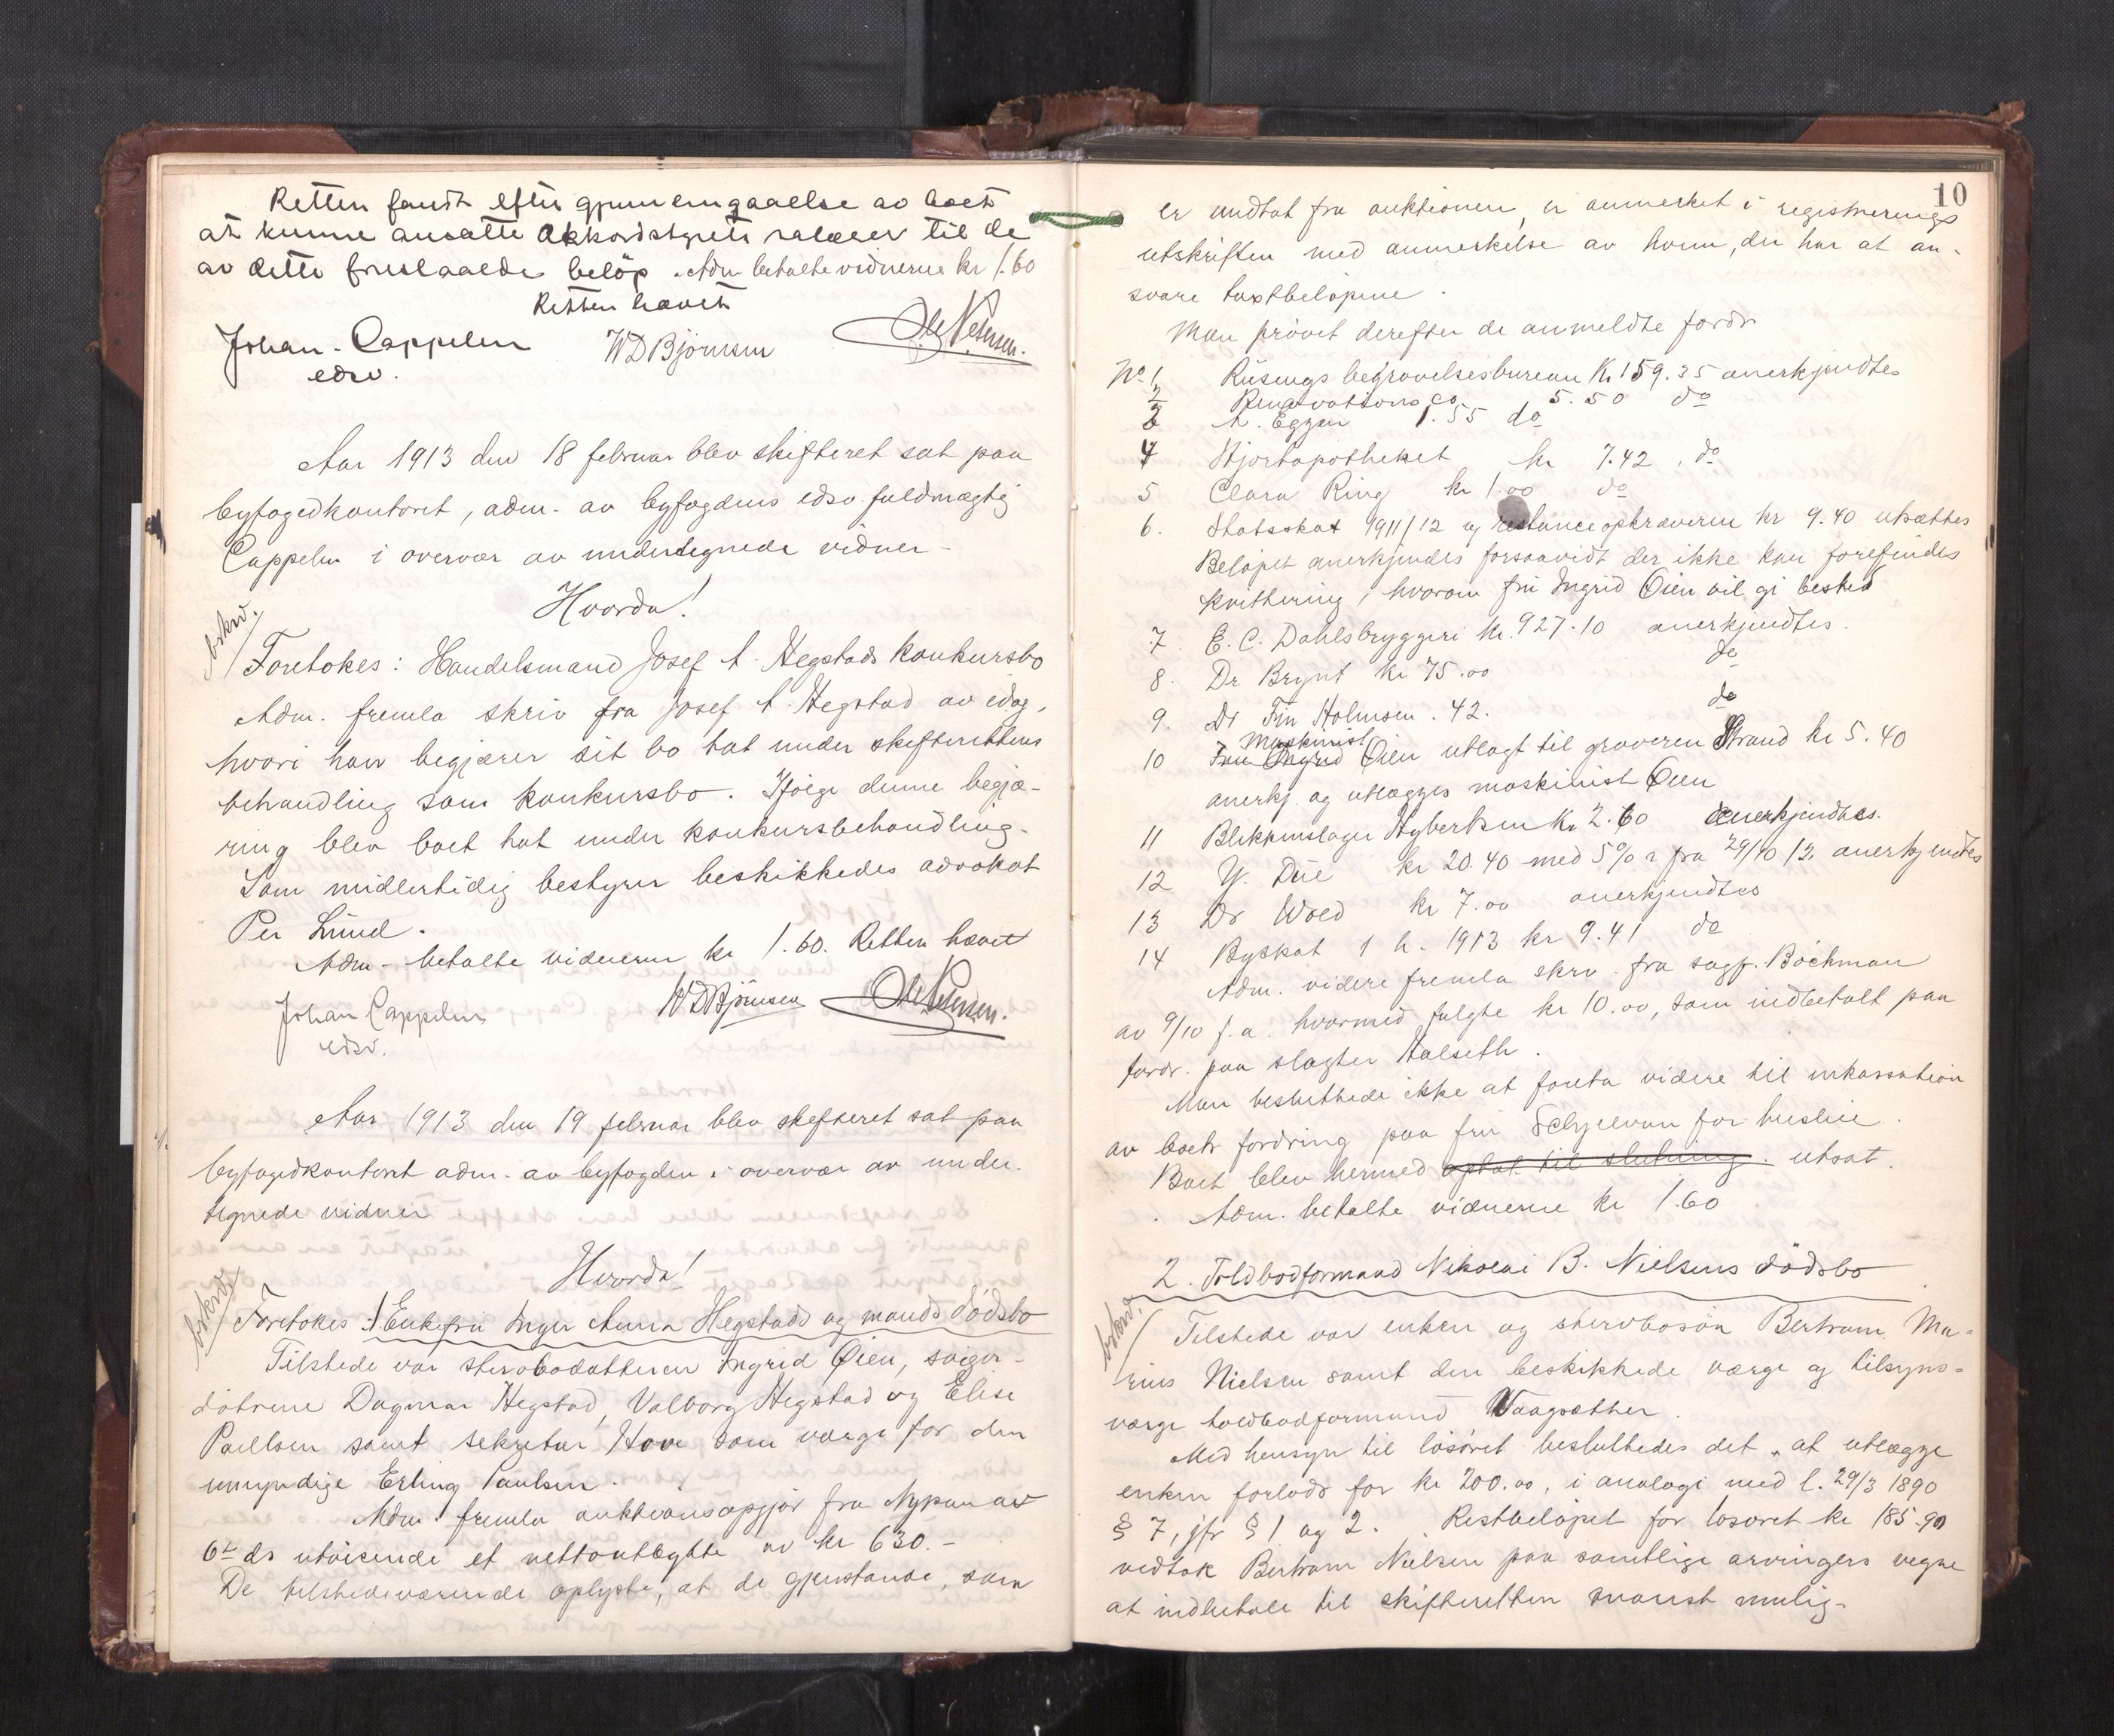 Retten fandt efter gjennemgaaelse av boet
at kunne ansætte Akkordstyrets salærer til de
av dette foreslaaede beløp. Adm. betalte vidnerne kr 1.60
Retten hævet
Johan Cappelen WDBjörnsen
edsv.
Aar 1913 den 18 februar blev skifteret sat paa
byfogedkontoret, adm. av byfogdens edsv. fuldmægtig
Cappelen i overvær av undertegnede vidner
Hvorda!
beskrv.
Foretokes: Handelsmand Josef A. Hegstads konkursbo
Adm. fremla skriv fra Josef A. Hegstad av idag,
hvori han begjærer sit bo tat under skifterettens
behandling som konkursbo. Ifølge denne begjæ-
ring blev boet tat under konkursbehandling.
Som midlertidig bestyrer beskikkedes advokat
Per Lund.
Adm. betalte vidnerne kr 1.60. Retten hævet
Johan Cappelen WDBjörnsen
edsv.
Aar 1913 den 19 februar blev skifteret sat paa
byfogedkontoret adm. av byfogden i overvær av under-
tegnede vidner
Hvorda!
beskrv.
Foretokes: 1. Enkefru Inger Anna Hegstads og mands dödsbo
Tilstede var stervbodatteren Ingrid Øien, sviger-
døtrene Dagmar Hegstad, Valborg Hegstad og Elise
Paulsen samt sekretær Hove som værge for den
umyndige Erling Paulsen.
Adm. fremla auktionsopgjør fra Nypan av
6te ds utvisende et nettoutbytte av kr 630.-
De tilstedeværende oplyste, at de gjenstande, som
10
er undtat fra auktionen, er anmerket i registrerings
utskriften med anmerkelse av hvem, der har at an-
svare taxtbeløpene.
Man prøvet derefter de anmeldte fordr
No 1. Rusings begravelsesbureau Kr 159.35 anerkjendtes
2 Renovations co 5.50 do
3 A. Eggen 1.55 do
4 Hjorteapotheket kr 7.42, do
5 Clara Ring kr 1.00 do
6. Statsskat 1911/12 og restanceopkræveren kr 9.40 utsættes
Beløpet anerkjendes forsaavidt der ikke kan forefindes
kvittering, hvorom fru Ingrid Øien vil gi besked
7. E. C. Dahlsbryggeri kr. 927.10 anerkjendtes.
8. Dr Brynt kr 75.00 do
9. Dr Fin Holmsen. 42. do
10 Fru Ingrid Maskinist Øien utlagt til graveren Strand kr 5.40
anerkj og utlægges maskinist Øien
11 Blikkenslager Hybertsen Kr 2.60 anerkjendtes.
12 Y. Due kr 20.40 med 5% r fra 29/10 12. anerkjendtes
13 Dr Wold kr 7.00 anerkjendtes
14 Byskat 1 h. 1913 kr 9.41 do
Adm. videre fremla skrv. fra sagf. Böckman
av 9/10 f.a. hvormed fulgte kr 10.00, som indbetalt paa
fordr. paa slagter Halseth.
Man besluttede ikke at foreta videre til inkassation
av boets fordring paa fru Schjelvan for husleie.
Boet blev hermed optat til slutning. utsat.
Adm. betalte vidnerne kr 1.60
2. Toldbodformand Nikolai B. Nielsens dödsbo
beskrv.
Tilstede var enken og stervbosøn Bertram Ma-
rius Nielsen samt den beskikkede værge og tilsyns-
værge toldbodformand Waagsæther.
Med hensyn til løsøret besluttedes det, at utlægge
enken forlods for kr 200.00, i analogi med l. 29/3 1890
§ 7, jfr § 1 og 2. Restbeløpet for løsøret kr 185.90
vedtok Bertram Nielsen paa samtlige arvingers vegne
at indbetale til skifteretten snarest mulig.